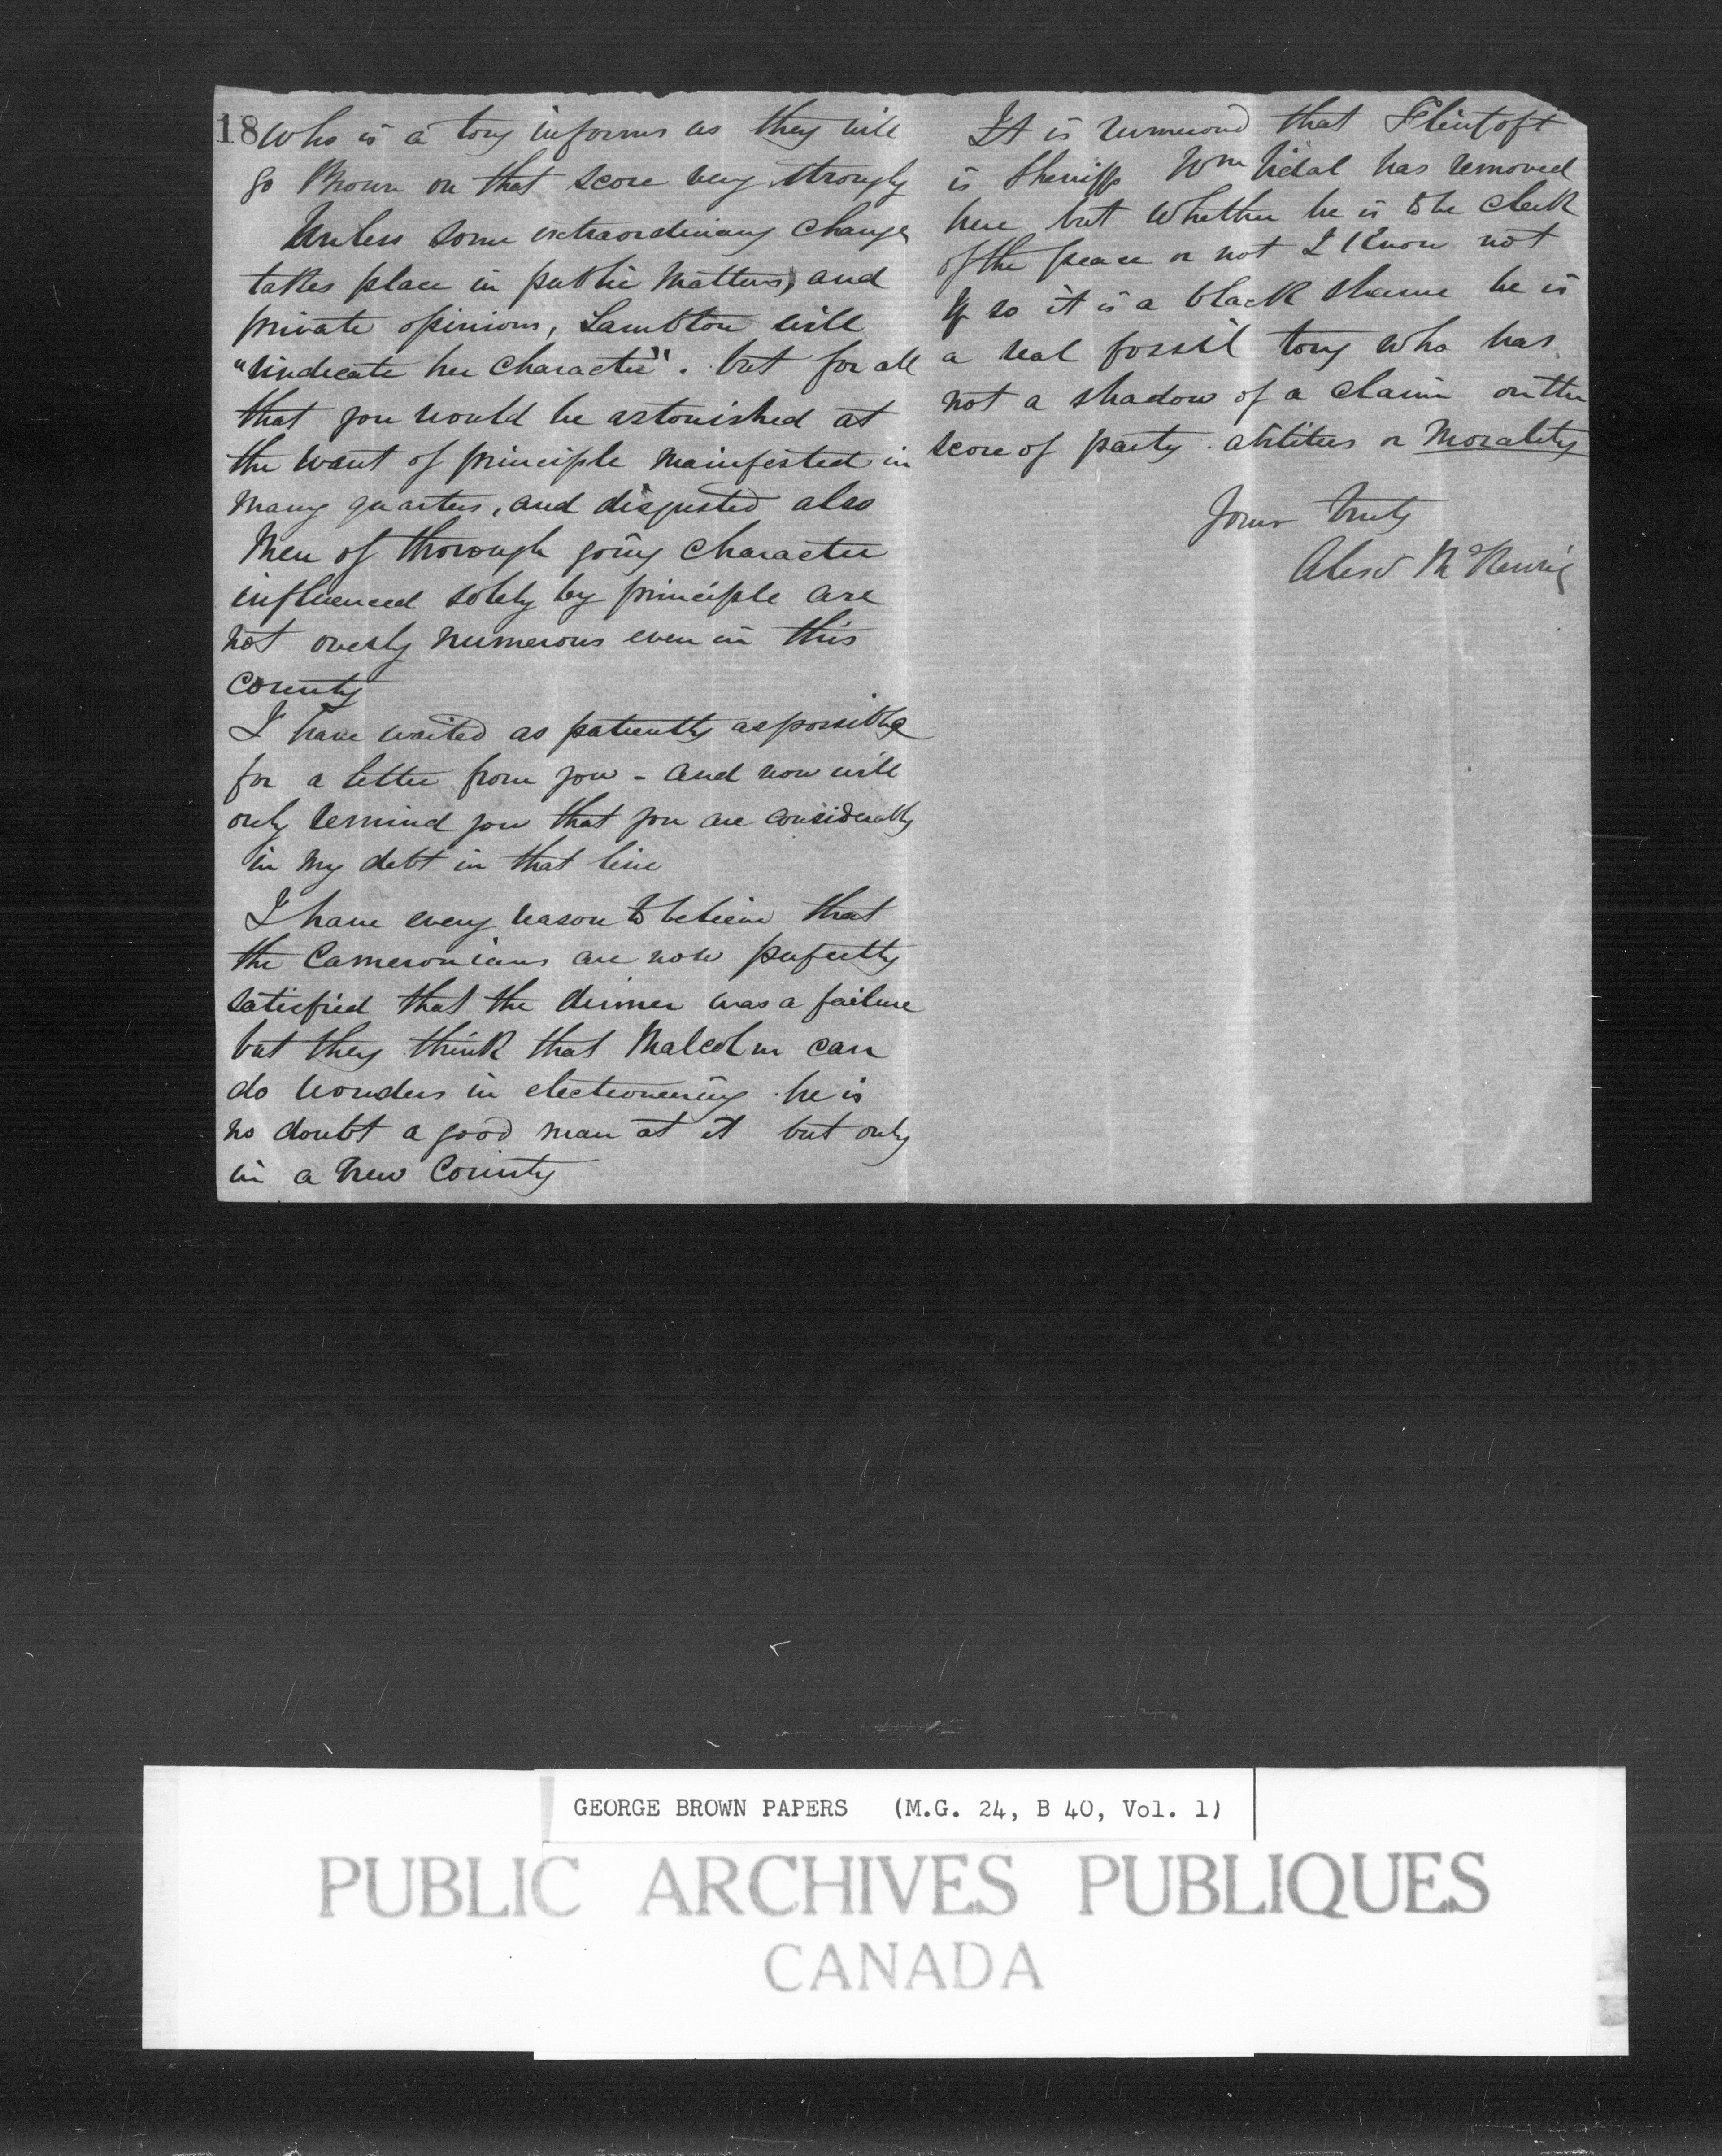 18
who is a tory informs us they will
go Brown on that score very strongly
Unless some extraordinary change
takes place in public matters, and
private opinions, Lambton will
"vindicate her character". but for all
that you would be astonished at
the want of principle mainfested in
many quarters, and disgusted also
Men of thorough going character
influenced solely by principle are
not overly numerous even in this
county
I have waited as patiently as possible
for a letter from you - and now will
only remind you that you are considerably
in my debt in that line
I have every reason to believe that
the Cameronians are now perfectly
satisfied that the dinner was a failure
but they think that Malcolm can
do wonders in electioneering he is
no doubt a good man at it but only
in a new County
It is rumoured that Flintoft
is Sheriff Wm Vidal has removed
here but whether he is to be clerk
of the peace or not I know not
If so it is a black shame he is
a real fossil tory who has
not a shadow of a claim on the
score of party abilities or Morality
Yours truly
Alexr McKenzie
GEORGE BROWN PAPERS (M.G. 24, B 40, Vol. 1)
PUBLIC ARCHIVES PUBLIQUES
CANADA